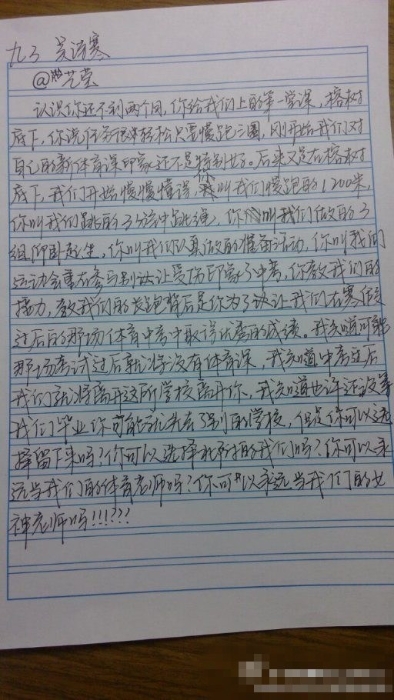 九3 吴语寒
@芷莹
认识你还不到两个月,你给我们上的第一堂课,榕树
底下,你说任务很轻松只要慢跑三圈,刚开始我们对
自己的新体育课印象还不是特别好。后来又是在榕树
底下,我们开始慢慢懂得,你叫我们慢跑的1200米,
你叫我们跳的3分钟跳绳,你叫我们做的3
组仰卧起坐,你叫我们认真做的准备活动,你叫我们
运动会重在参与别让受伤影响了中考,你教我们的
接力,教我们的长跑背后是你为了让我们在寒假
过后的那场体育中考中取得优异的成绩。我知道可能
那场考试过后就将没有体育课,我知道中考过后
我们就将离开这所学校离开你,我知道也许还没等
我们毕业你可能就去了别的学校,但是你可以选
择留下来吗?你可以选择我们吗?你可以永
远当我们的体育老师吗?你可以永远当我们的女
神老师吗!!!???